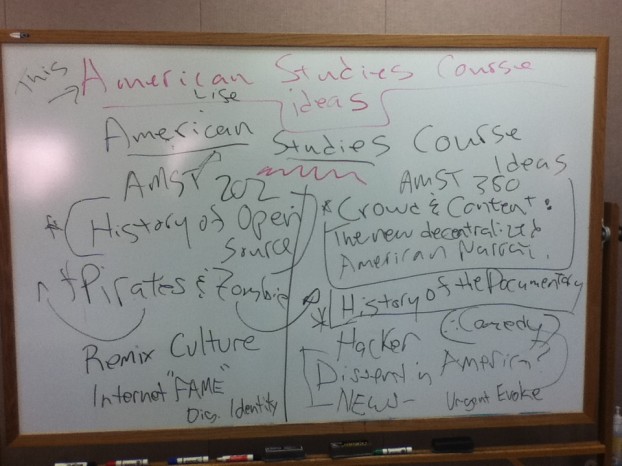 This American Studies Course
Lise
ideas
American Studies Course
Ideas
AMST 202
* History of Open
Source
* Pirates & Zombie
Remix Culture
Internet "FAME"
Dig. Identity
AMST 350
* Crowd & Content:
The new decentralized
American
* History of the Documentary
Hacker (: Comedy)
Dissent in America?
NEWS -
Urgent Evoke